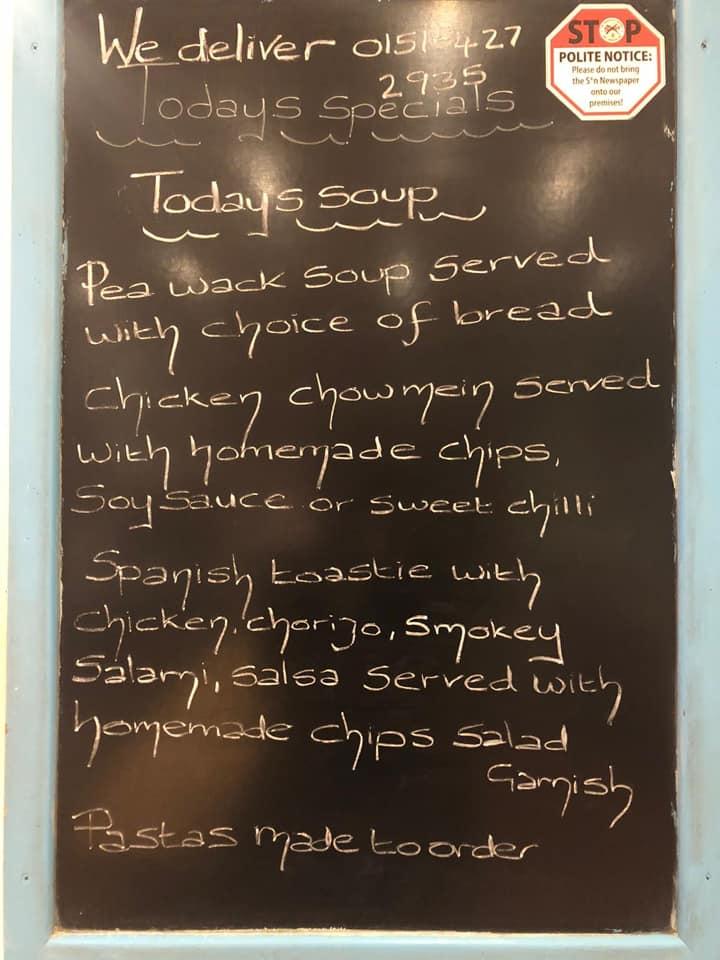 We deliver 0151 427
2935
Todays specials
STOP
POLITE NOTICE:
Please do not bring
the S*n Newspaper
onto our
premises!
Todays soup
Pea wack soup served
with choice of bread
Chicken chow mein served
with homemade chips,
Soy sauce or sweet chilli
Spanish toastie with
chicken, chorizo, smokey
Salami, salsa served with
homemade chips salad
Garnish
Pastas made to order